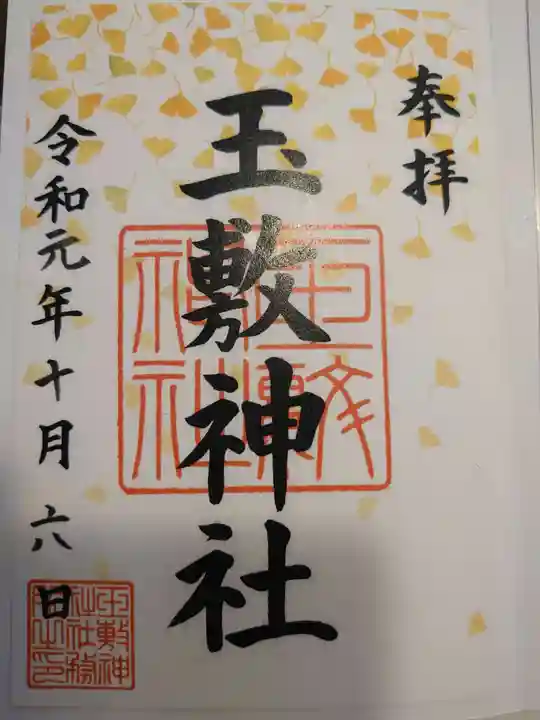 奉拝
玉敷神社
令和元年十月六日
玉敷神社
玉敷神社社務所之印